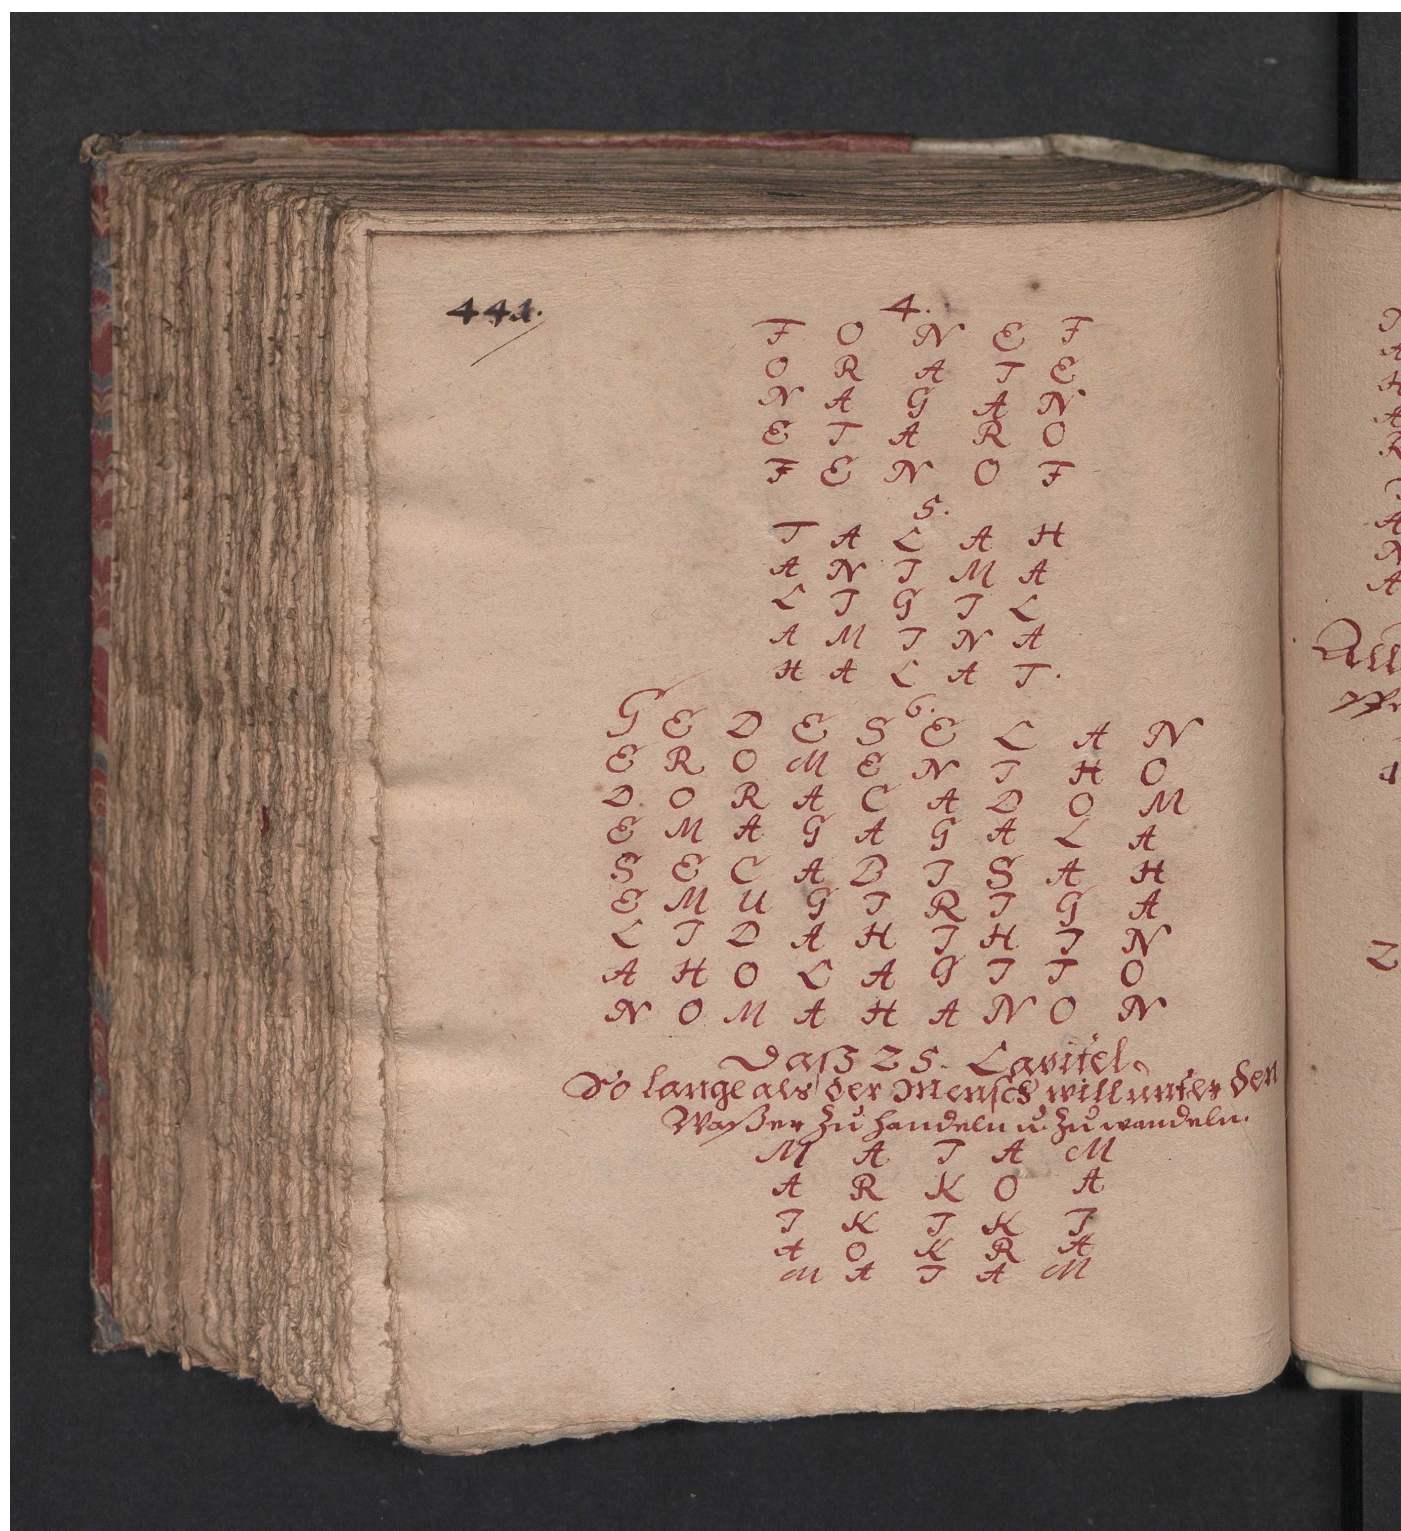 441.
4.
F O N E F
O R A I E
N A G A N
E T A R O
F E N O F
5.
T A L A H
A N I M A
L I G I L
A M I N A
H A L A T.
6.
G E D E S E L A N
E R O M E N I H O
D O R A C A D O M
E M A G A G A L A
S E C A B I S A H
E M U G I R I G A
L I D A H I H I N
A H O L A G I T O
N O M A H A N O N
Daß 25. Capitel.
So lange als der Mensch will unter den
Waßer zu handeln u. zu wandeln.
M A I A M
A R K O A
I K I K I
A O K R A
M A I A M